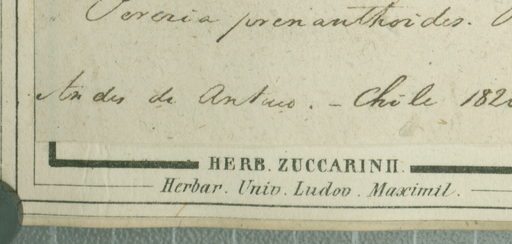 Perezia prenanthoides.
Andes de Antuco. - Chile 182
HERB. ZUCCARINII.
Herbar. Univ. Ludov. Maximil.